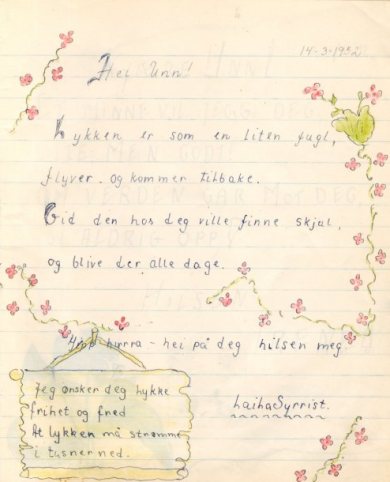 14-3-1952
Hei Unni!
Lykken er som en liten fugl,
flyver og kommer tilbake.
Gid den hos deg ville finne skjul,
og blive der alle dage.
Hipp hurra - hei på deg hilsen meg
Laiha Syrrist.
Jeg ønsker deg lykke
frihet og fred
At lykken må strømme
i tasner ned.